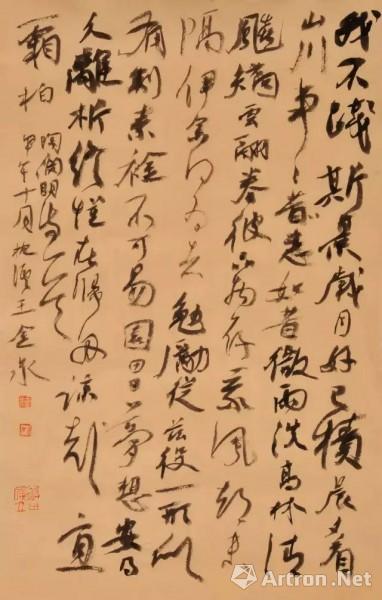 我不踐斯景歲月好已積晨夕看
山川事々悉如昔微雨洗高林清
飈矯雲翮眷彼品物存義風都未
隔伊余何為者勉勵從茲役一形似
有制素襟不可易園田日夢想安得
久離析終懷在歸舟諒哉宜
霜柏
陶淵明詩一首
年十月王金泉
雅昌艺术网
Artron.Net